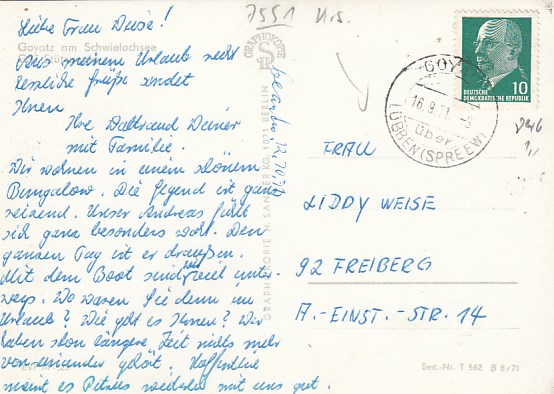 7551 u.s.
Liebe Frau Weise!
Goyatz am Schwielochsee
Aus meinem Urlaub recht
herzliche Grüße sendet
Ihnen
Ihre Waltraud
mit Familie.
Wir wohnen in einem schönen
Bungalow. Die Gegend ist ganz
reizend. Unser Andreas fühlt
sich ganz besonders wohl. Den
ganzen Tag ist er draußen.
Mit dem Boot sind wir viel unter-
wegs. Wo waren Sie denn im
Urlaub? Wie geht es Ihnen? Wir
haben schon längere Zeit nichts mehr
voneinander gehört. Hoffentlich
meint es Petrus weiterhin mit uns gut.
GRAPHOKOPIE
GRAPHOKOPIE H. SANDER KG, 1071 BERLIN
GOY
16.9.71-9
über
LÜBBEN (SPREEW)
10
DEUTSCHE
DEMOKRATISCHE REPUBLIK
FRAU
LIDDY WEISE
92 FREIBERG
A.-EINST.-STR. 14
Best.-Nr. T 582 B 8/71